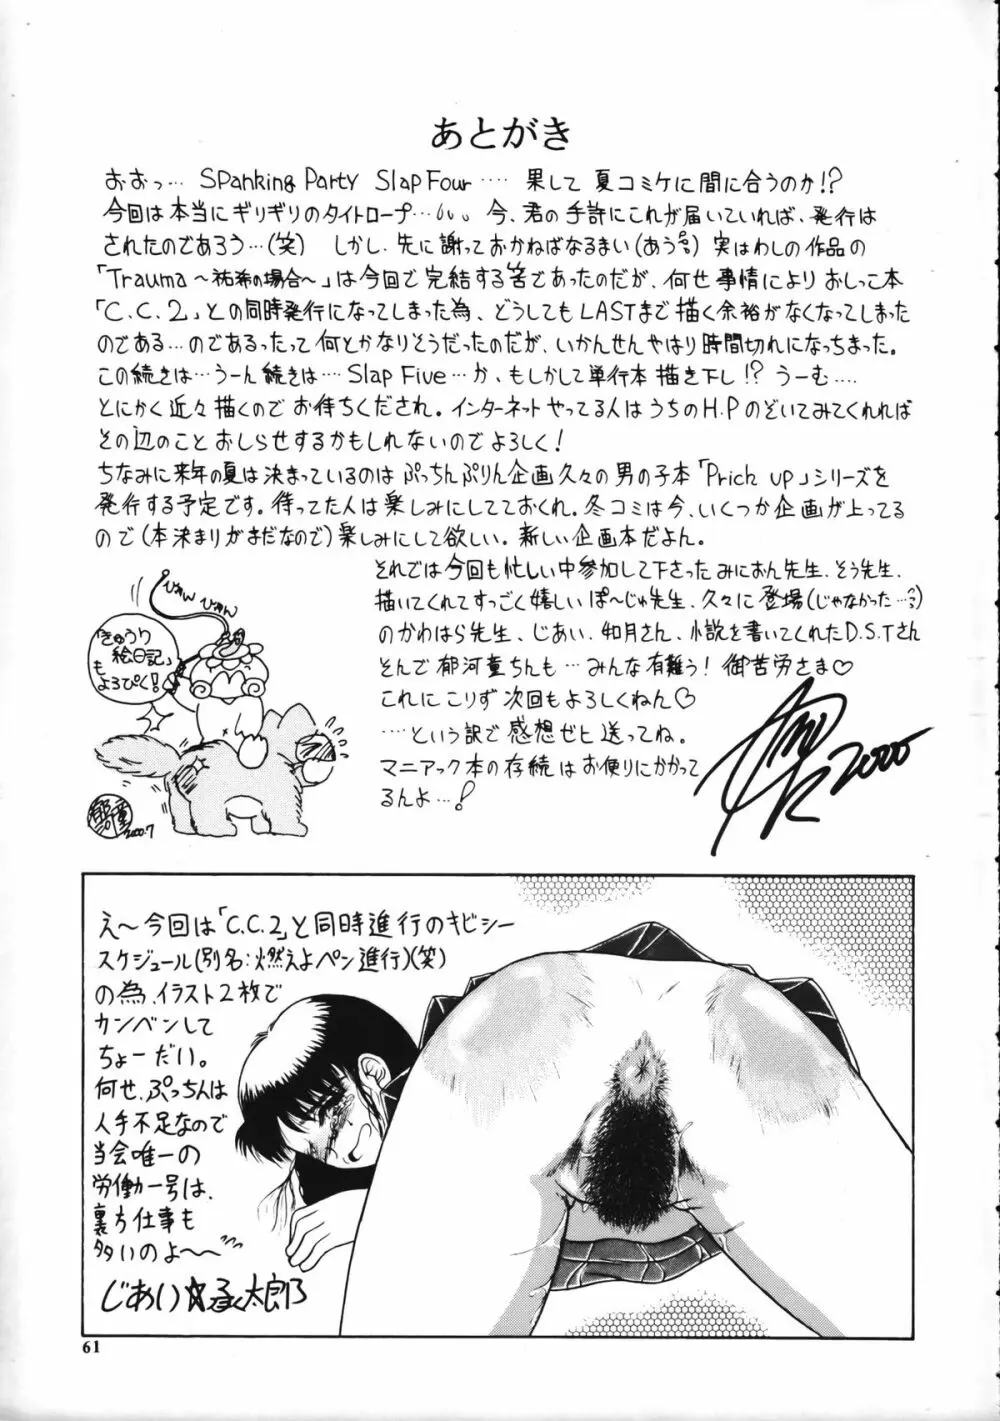 あとがき
おおっ… Spanking Party Slap Four…… 果して 夏コミケに間に合うのか!?
今回は本当にギリギリのタイトロープ… 今、君の手許にこれが届いていれば、発行は
されたのであろう…(笑) しかし、先に謝っておかねばなるまい(あうぅ) 実はわしの作品の
「Trauma 〜祐希の場合〜」は今回で完結する筈であったのだが、何せ事情により おしっこ本
「C.C.2」との同時発行になってしまった為、どうしてもLASTまで描く余裕がなくなってしまった
のである…のであるったって何とかなりそうだったのだが、いかんせんやはり時間切れになっちまった。
この続きは…うーん続きは… Slap Five…か、もしかして単行本描き下し!? うーむ…
とにかく近々描くので お待ちくだされ。インターネットやってる人はうちのH.Pのぞいてみてくれれば
その辺のこと おしらせするかもしれないのでよろしく!
ちなみに来年の夏は決まっているのは ぷっちんぷりん企画久々の男の子本「Prich up」シリーズを
発行する予定です。待ってた人は楽しみにしてておくれ。冬コミは今、いくつか企画が上ってる
ので(本決まりがまだなので)楽しみにして欲しい。新しい企画本だよん。
それでは今回も忙しい中参加して下さったみにおん先生、そう先生、
描いてくれてすっごく嬉しいぽ〜じゅ先生、久々に登場(じゃなかった…)
のかわはら先生、じあい、如月さん、小説を書いてくれたD.S.Tさん
そんで郁河童ちんも…みんな有難う!御苦労さま♡
これにこりず次回もよろしくねん♡
…という訳で感想ゼヒ送ってね。
マニアック本の存続はお便りにかかって
るんよ…!
ぴょん ぴょん
「きゅうり
絵日記」
も
よろぴく!
2000.7
2000
え〜今回は「C.C.2」と同時進行のキビシー
スケジュール(別名:燃えよペン進行)(笑)
の為、イラスト2枚で
カンベンして
ちょーだい。
何せ、ぷっちんは
人手不足なので
当会唯一の
労働一号は、
裏方仕事も
多いのよ〜
じあい☆承太郎
61